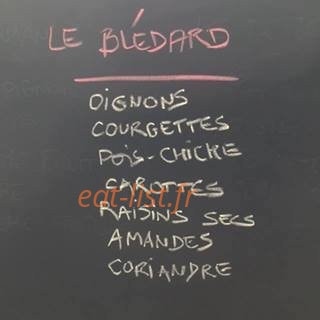 LE BLÉDARD
OIGNONS
COURGETTES
POIS-CHICHE
CAROTTES
eat-list.fr
RAISINS SECS
AMANDES
CORIANDRE